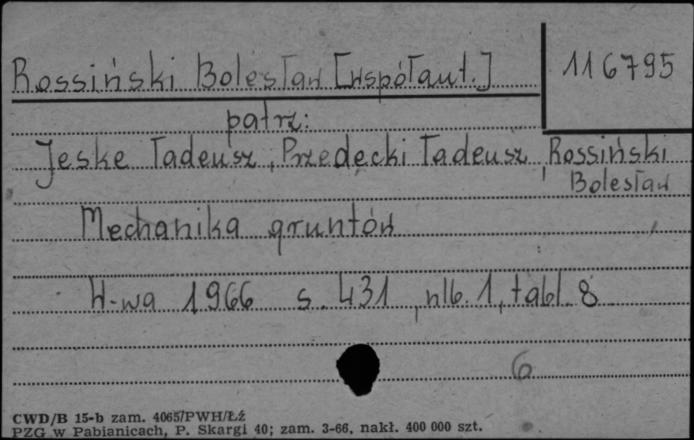 Rossiński Bolesław [współaut.]
116795
patrz:
Jeske Tadeusz, Przedecki Tadeusz, Rossiński
Bolesław
Mechanika gruntów
W-wa 1966 s. 431, nlb. 1, tabl. 8
6
CWD/B 15-b zam. 4065/PWH/Łź
PZG w Pabianicach, P. Skargi 40; zam. 3-66, nakł. 400 000 szt.